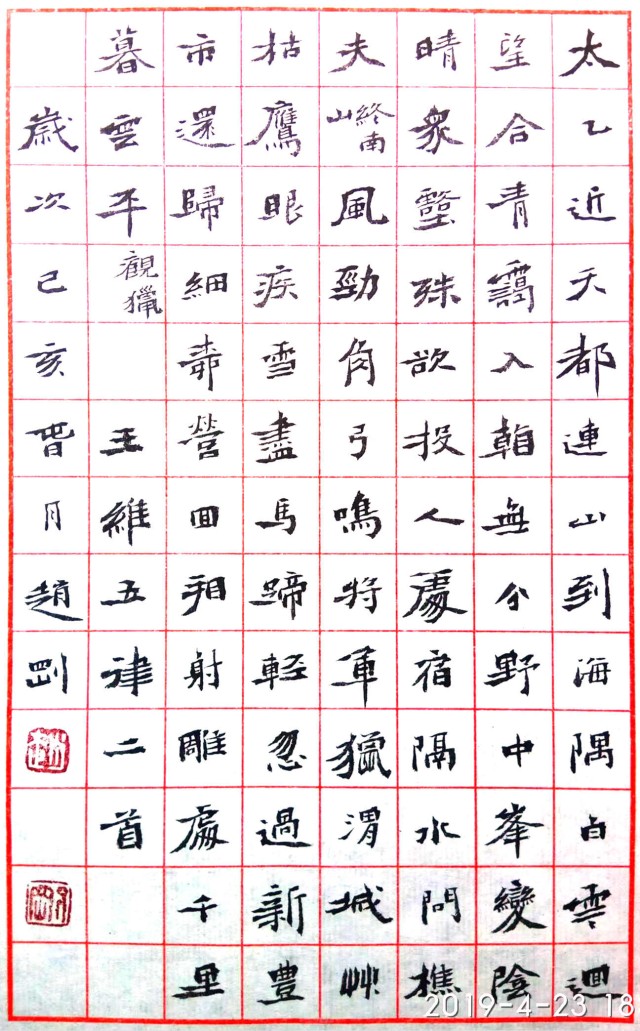 太乙近天都連山到海隅白雲迴
望合青靄入看無分野中峯變陰
晴衆壑殊欲投人處宿隔水問樵
夫終南山風勁角弓鳴將軍獵渭城艸
枯鷹眼疾雪盡馬蹄輕忽過新豊
市還歸細柳營回看射雕處千里
暮雲平觀獵 王維五律二首
歲次己亥春月趙剛
2019-4-23 18